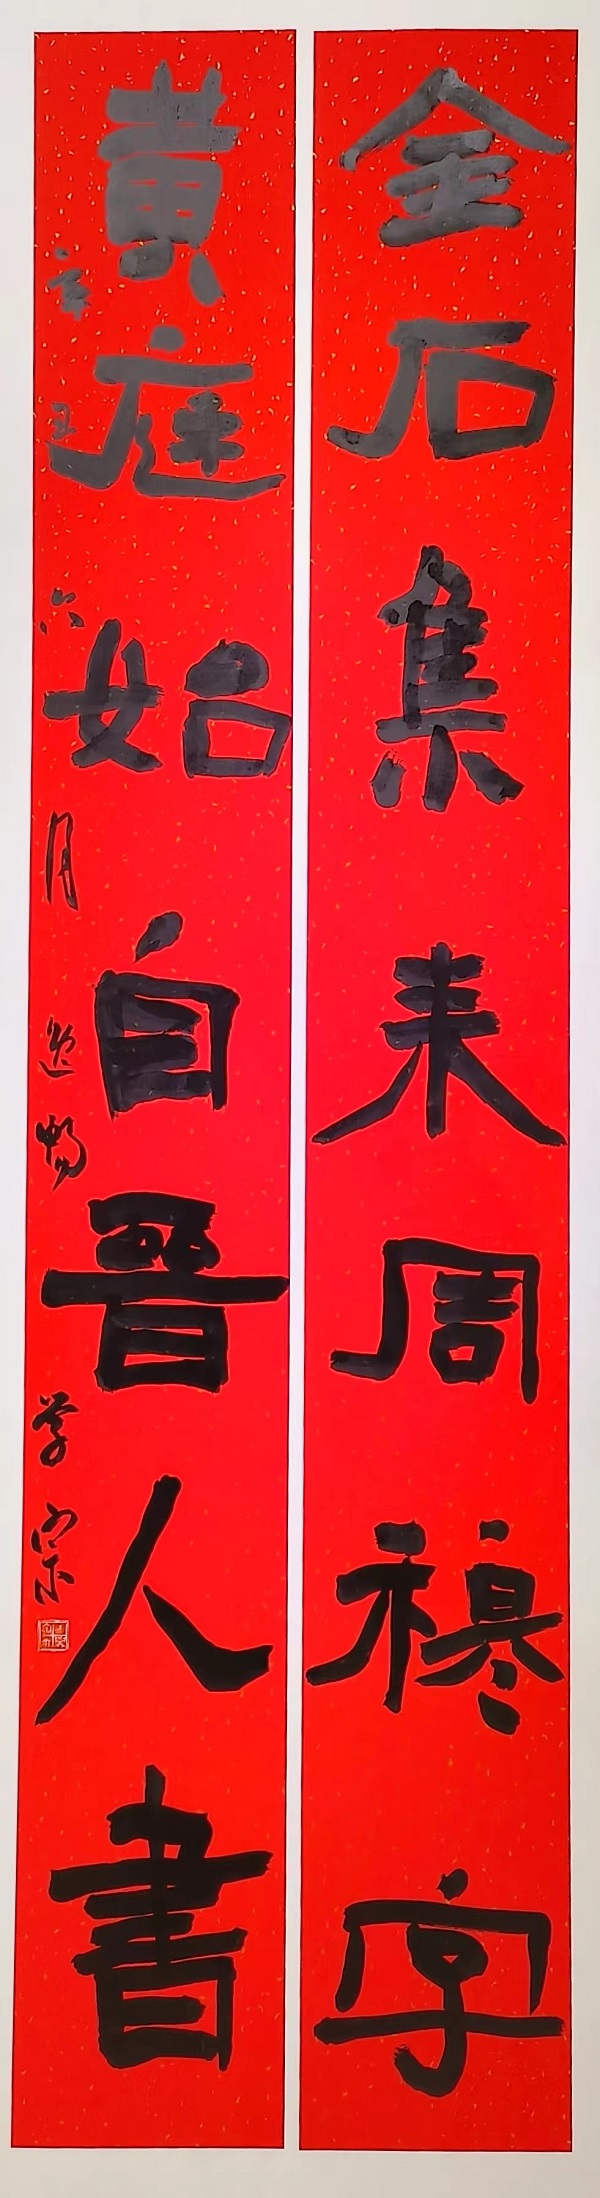 金石集来周穆字
黄庭始自晋人書
辛丑六月逸畅学宗